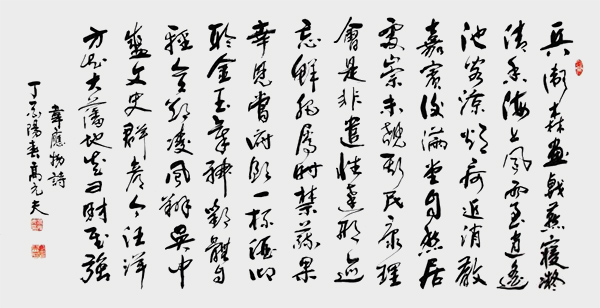 兵衛森畫戟燕寢凝
清香海上風雨至逍遙
池閣涼煩痾近消散
嘉賓復滿堂自慙居
處崇未覩斯民康理
會是非遣性達形迹
忘鮮肥屬時禁蔬果
幸見嘗俯飲一杯酒仰
聆金玉章神歡體自
輕意欲凌風翔吳中
盛文史群彥今汪洋
方知大藩地豈曰財賦強
韋應物詩
丁亥陽春高元夫